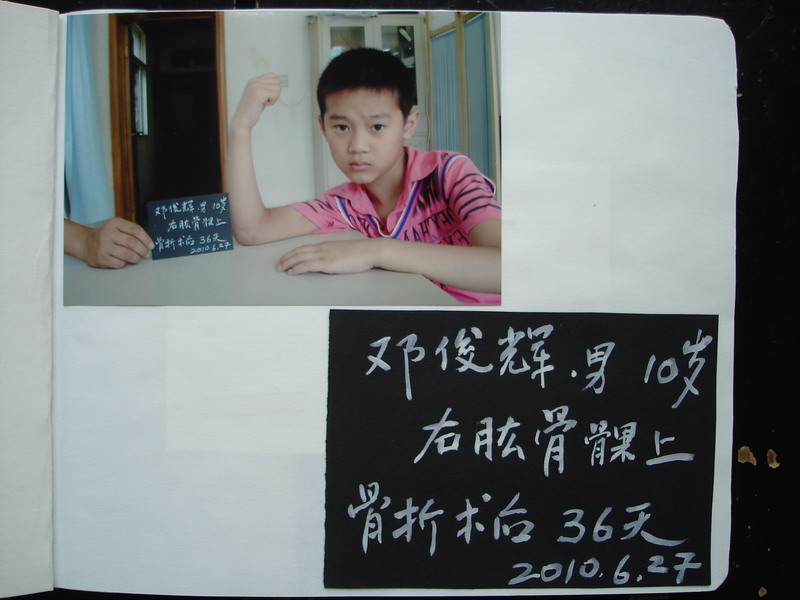 邓俊辉.男 10岁
右肱骨髁上
骨折术后 36天
2010.6.27
邓俊辉.男 10岁
右肱骨髁上
骨折术后 36天
2010.6.27